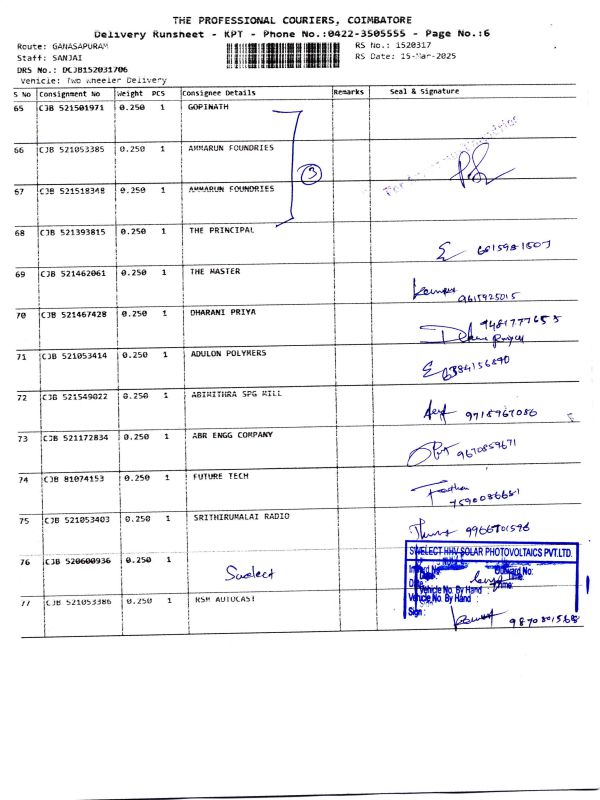 THE PROFESSIONAL COURIERS, COIMBATORE
Delivery Runsheet - KPT - Phone No.:0422-3505555 - Page No.:6
Route: GANASAPURAM
RS No.: 1520317
Staff: SANJAI
RS Date: 15-Mar-2025
DRS No.: DCJB152031706
Vehicle: Two Wheeler Delivery
S No Consignment No Weight PCS Consignee Details Remarks Seal & Signature
65 CJB 521501971 0.250 1 GOPINATH
66 CJB 521053385 0.250 1 AMMARUN FOUNDRIES
3
67 CJB 521518348 0.250 1 AMMARUN FOUNDRIES
68 CJB 521393815 0.250 1 THE PRINCIPAL
69 CJB 521462061 0.250 1 THE MASTER 9615925015
70 CJB 521467428 0.250 1 DHARANI PRIYA
71 CJB 521053414 0.250 1 ADULON POLYMERS
72 CJB 521549022 0.250 1 ABIMITHRA SPG MILL 9718967086
73 CJB 521172834 0.250 1 ABR ENGG COMPANY 9670859671
74 CJB 81074153 0.250 1 FUTURE TECH
75 CJB 521053403 0.250 1 SRITHIRUMALAI RADIO
76 CJB 520600936 0.250 1 Swelect
SWELECT HHV SOLAR PHOTOVOLTAICS PVT.LTD.
Outward No:
Vehicle No. By Hand :
77 CJB 521053386 0.250 1 RSM AUTOCAST
Vehicle No. By Hand :
Sign : 9870801568